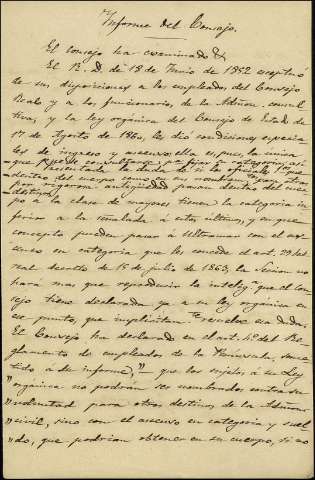 Informe del Consejo.
El Consejo ha examinado &
El R. D. de 18 de Junio de 1852 exceptuó
de sus disposiciones a los empleados del Consejo
Real y a los funcionarios de la Admon. consul
tiva, y la ley orgánica del Consejo de Estado de
17 de Agosto de 1860, les dió condiciones especia
les de ingreso y ascenso,
que puede consultarse para fijar su categoría; así
Presentada la duda de si los oficiales
dentes del cuerpo como en su nombra
por rigorosa antigüedad pasan dentro del cuer
po a la clase de mayores tienen la categoría in
ferior a la señalada á estos últimos, y en que
concepto pueden pasar á Ultramar con el as
censo en categoría que les concede el art. 29 del
real decreto de 15 de julio de 1863, la Sección no
hará mas que reproducir la inteligª que el Con
sejo tiene declarada ya a su ley orgánica en
este punto, que implicitamte resuelve esa duda.
El Consejo ha declarado en el art. 4º del Re
glamento de empleados de la Península, some
tido á su informe, "que los sujetos á su Ley
"orgánica no podrán ser nombrados contra su
"voluntad para otros destinos de la Admon
"civil, sino con el ascenso en categoría y suel
"do, que podrían obtener en su cuerpo, si no